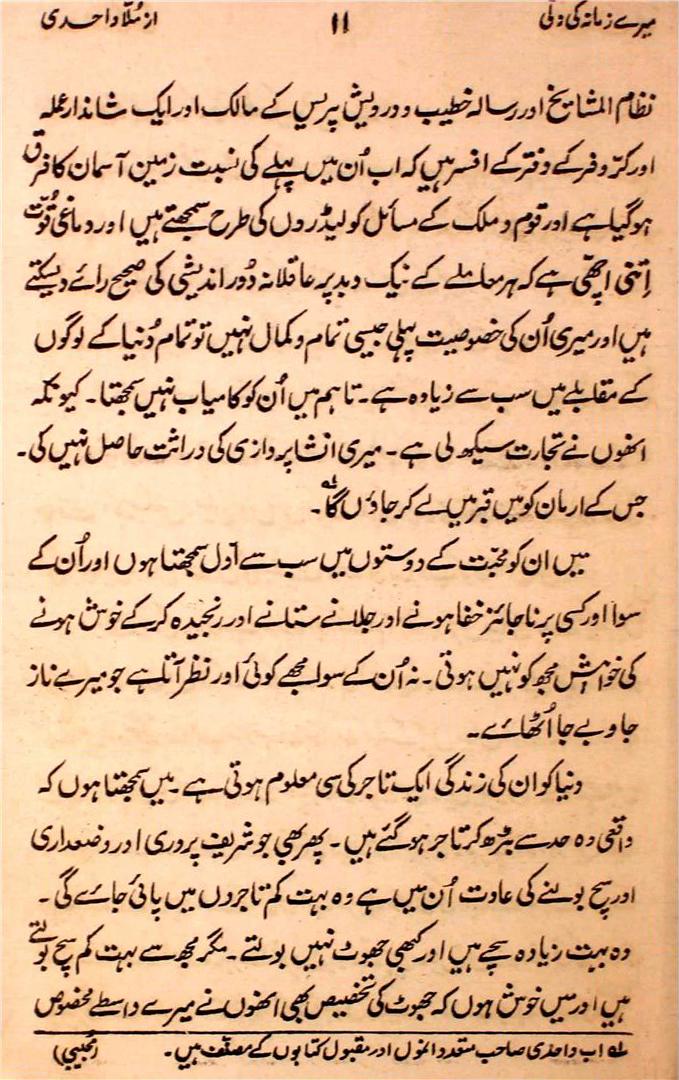 میرے زمانہ کی دلی ۱۱ از مُلّا واحدی
نظام المشایخ اور رسالہ خطیب و درویش پریس کے مالک اور ایک شاندار عملہ
اور کرّ و فر کے دفتر کے افسر ہیں کہ اب اُن میں پہلے کی نسبت زمین آسمان کا فرق
ہوگیا ہے اور قوم و ملک کے مسائل کو لیڈروں کی طرح سمجھتے ہیں اور دماغی قُوّت
اِتنی اچھّی ہے کہ ہر معاملے کے نیک و بد پر عاقلانہ دُور اندیشی کی صحیح رائے دیسکتے
ہیں اور میری اُن کی خصوصیت پہلی جیسی تمام و کمال نہیں تو تمام دُنیا کے لوگوں
کے مقابلے میں سب سے زیادہ ہے۔ تاہم میں اُن کو کامیاب نہیں سمجھتا۔ کیونکہ
انھوں نے تجارت سیکھ لی ہے۔ میری انشا پردازی کی وراثت حاصل نہیں کی۔
جس کے ارمان کو میں قبر میں لے کر جاؤں گا؂۱۔
میں ان کو محبّت کے دوستوں میں سب سے اَوّل سمجھتا ہوں اور اُن کے
سوا اور کسی پر ناجائز خفا ہونے اور جلانے ستانے اور رنجیدہ کرکے خوش ہونے
کی خواہش مجھ کو نہیں ہوتی۔ نہ اُن کے سوا مجھے کوئی اور نظر آتا ہے جو میرے ناز
جا و بے جا اُٹھائے۔
دنیا کو ان کی زندگی ایک تاجر کی سی معلوم ہوتی ہے۔ میں سمجھتا ہوں کہ
واقعی وہ حد سے بڑھ کر تاجر ہوگئے ہیں۔ پھر بھی جو شریف پروری اور وضعداری
اور سچ بولنے کی عادت اُن میں ہے وہ بہت کم تاجروں میں پائی جائے گی۔
وہ بہت زیادہ سچے ہیں اور کبھی جھوٹ نہیں بولتے۔ مگر مجھ سے بہت کم سچ بولتے
ہیں اور میں خوش ہوں کہ جھوٹ کی تخصیص بھی انھوں نے میرے واسطے مخصوص
؂۱ اب واحدی صاحب متعدد انمول اور مقبول کتابوں کے مصنّف ہیں۔ (مُجیبی)